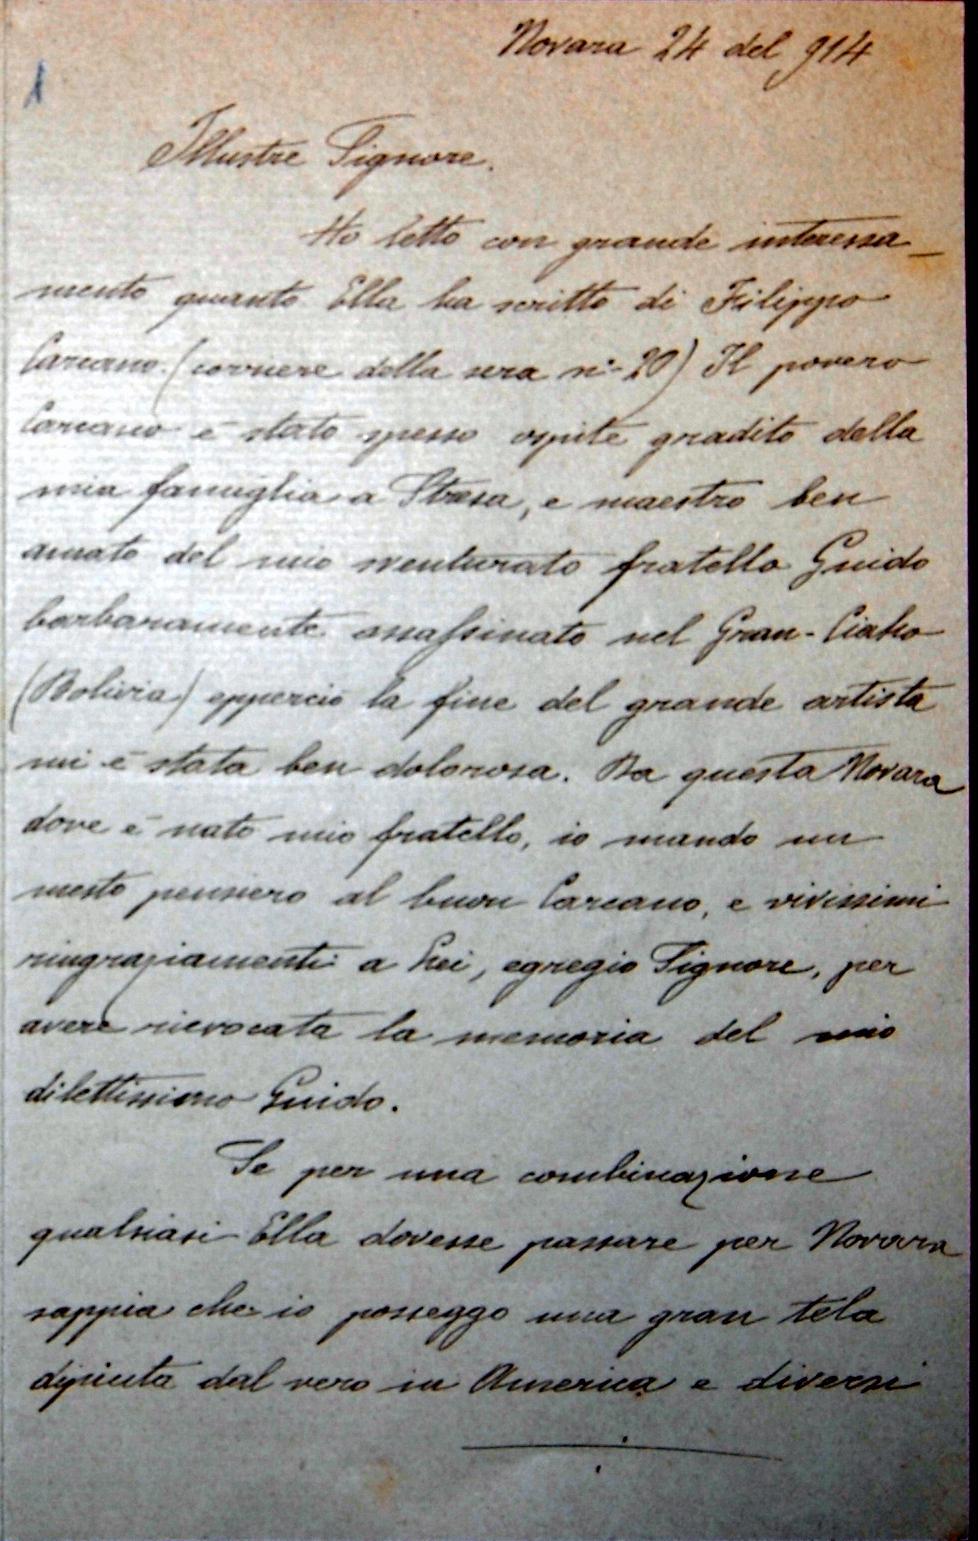 1
Novara 24 del 914
Illustre Signore.
Ho letto con grande interessa_
mento quanto Ella ha scritto di Filippo
Carcano. (corriere della sera n:- 20) Il povero
Carcano è stato spesso ospite gradito della
mia famiglia a Stresa, e maestro ben
amato del mio sventurato fratello Guido
barbaramente assassinato nel Gran-Ciako
(Bolivia) eppercio la fine del grande artista
mi è stata ben dolorosa. Da questa Novara
dove è nato mio fratello, io mando un
mesto pensiero al buon Carcano, e vivissimi
ringraziamenti a Lei, egregio Signore, per
avere rievocata la memoria del mio
dilettissimo Guido.
Se per una combinazione
qualsiasi Ella dovesse passare per Novara
sappia che io posseggo una gran tela
dipinta dal vero in America e diversi